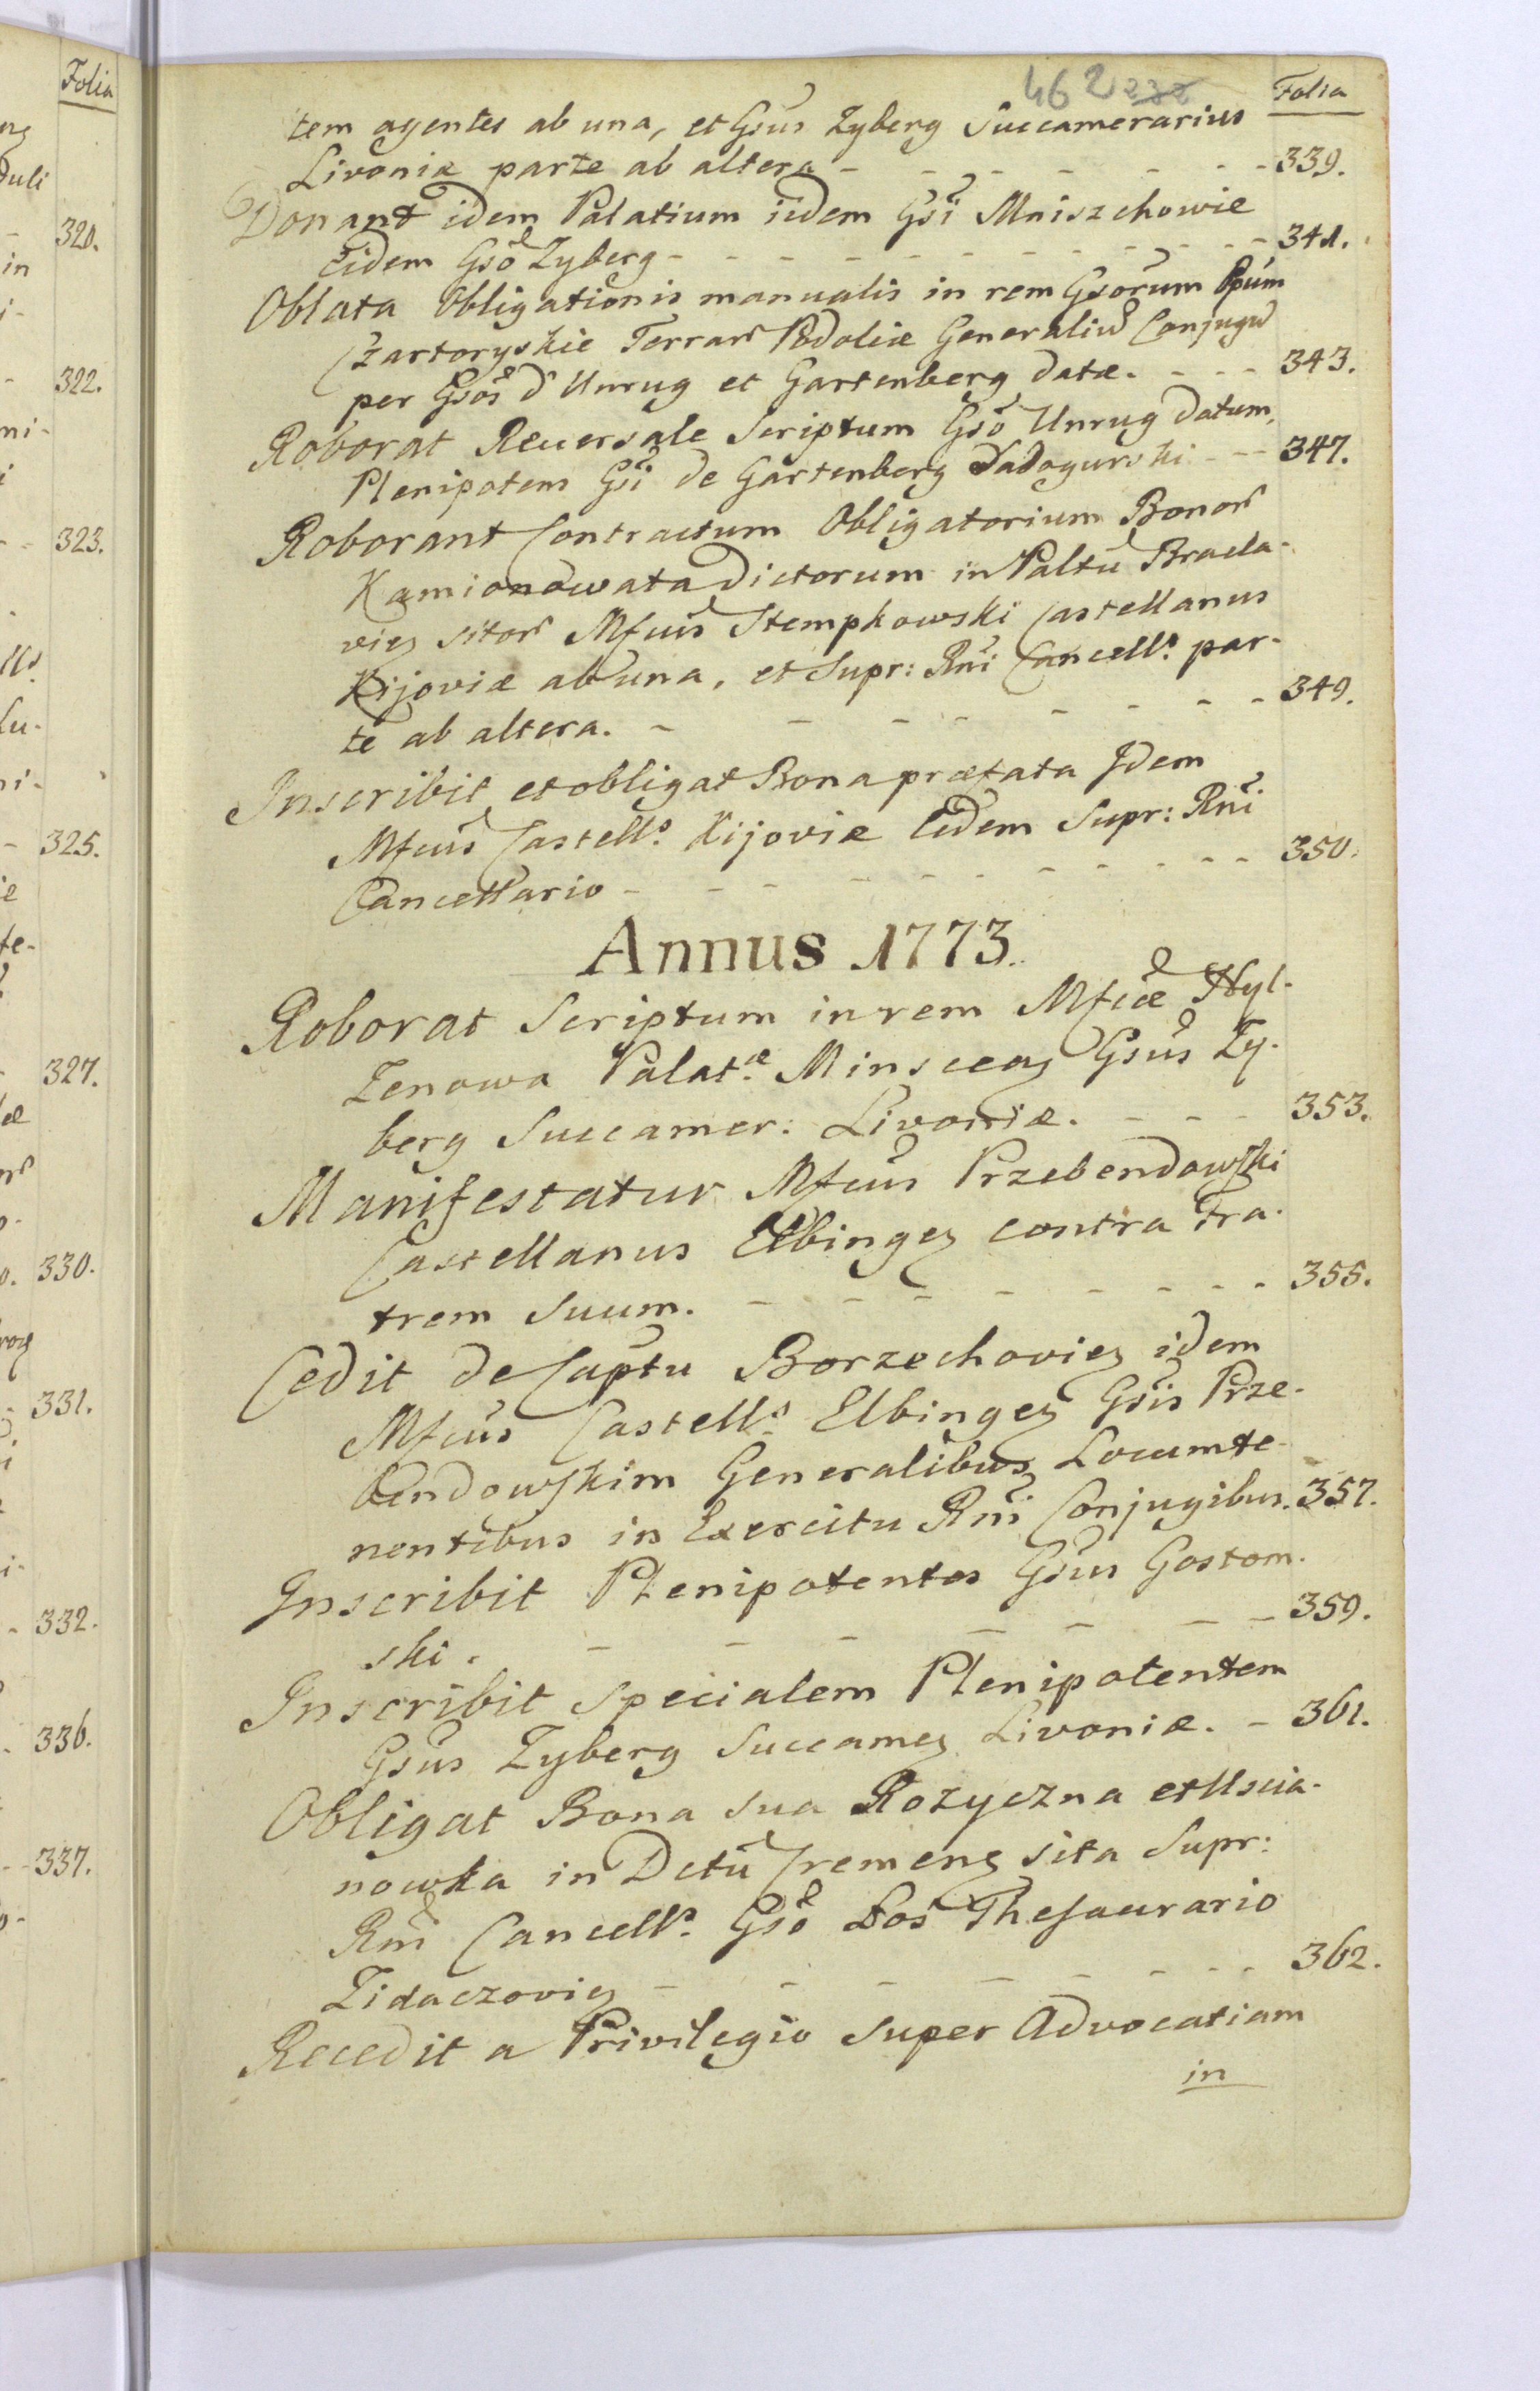 462 232
Folia
tem agentes ab una, et Gsus Zyberg Succamerarius
Livoniæ parte ab altera - - - - - - 339.
Donant idem Palatium iidem Gsi Mniszchowie
Eidem Gso Zyberg - - - - - - - - - 341.
Oblata Obligationis manualis in rem Gsorum Ppum
Czartoryskie Terrar Podoliæ Generaliu Conjugu
per Gsos d'Unrug et Gartenberg datæ. - - - 343.
Roborat Reversale Scriptum Gso Unrug datum,
Plenipotens Gsi de Gartenberg Sadogurski - - 347.
Roborant Contractum Obligatorium Bonor
Kamionowata dictorum in Paltu Bracla-
vien sitor Mfcus Stempkowski Castellanus
Kijoviæ ab una, et Supr: Rni Cancells. par-
te ab altera. - - - - - - - - 349.
Inscribit et obligat Bona præfata Idem
Mfcus Castells. Kijoviæ Eidem Supr: Rni
Cancellario - - - - - - - - - 350.
Annus 1773.
Roborat Scriptum in rem Mfcæ Hyl-
Zenowa Palat.æ Minscen Gsus Zy-
berg Succamer: Livoniæ. - - - 353.
Manifestatur Mfcus Przebendowski
Castellanus Elbingen contra Fra-
trem Suum. - - - - - - - - 355.
Cedit de Captu Borzechovien idem
Mfcus Castells. Elbingen Gsis Prze-
bendowskim Generalibus Locumte-
nentibus in Exercitu Rni Conjugibus. 357.
Inscribit Plenipotentes Gsus Gostom-
ski. - - - - - - - 359.
Inscribit Specialem Plenipotentem
Gsus Zyberg Succamer Livoniæ. - 361.
Obligat Bona Sua Rozyczna et Uscia-
nowka in Dctu Cremenc sita Supr:
Rni Cancells. Gso Łos Thesaurario
Zidaczovien - - - - - - - - 362.
Recedit a Privilegio Super Advocatiam
in
Folia
320.
322.
323.
325.
327.
330.
331.
332.
336.
337.